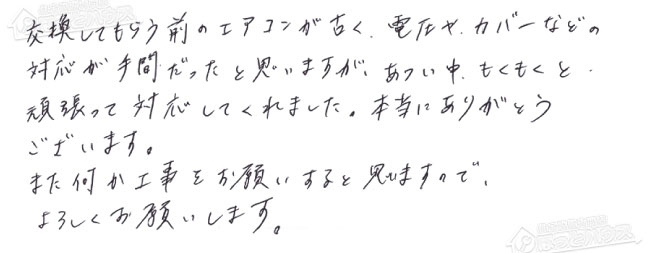 交換してもらう前のエアコンが古く、電圧や、カバーなどの
対応が手間だったと思いますが、あつい中、もくもくと
頑張って対応してくれました。本当にありがとう
ございます。
また何か工事をお願いすると思いますので、
よろしくお願いします。